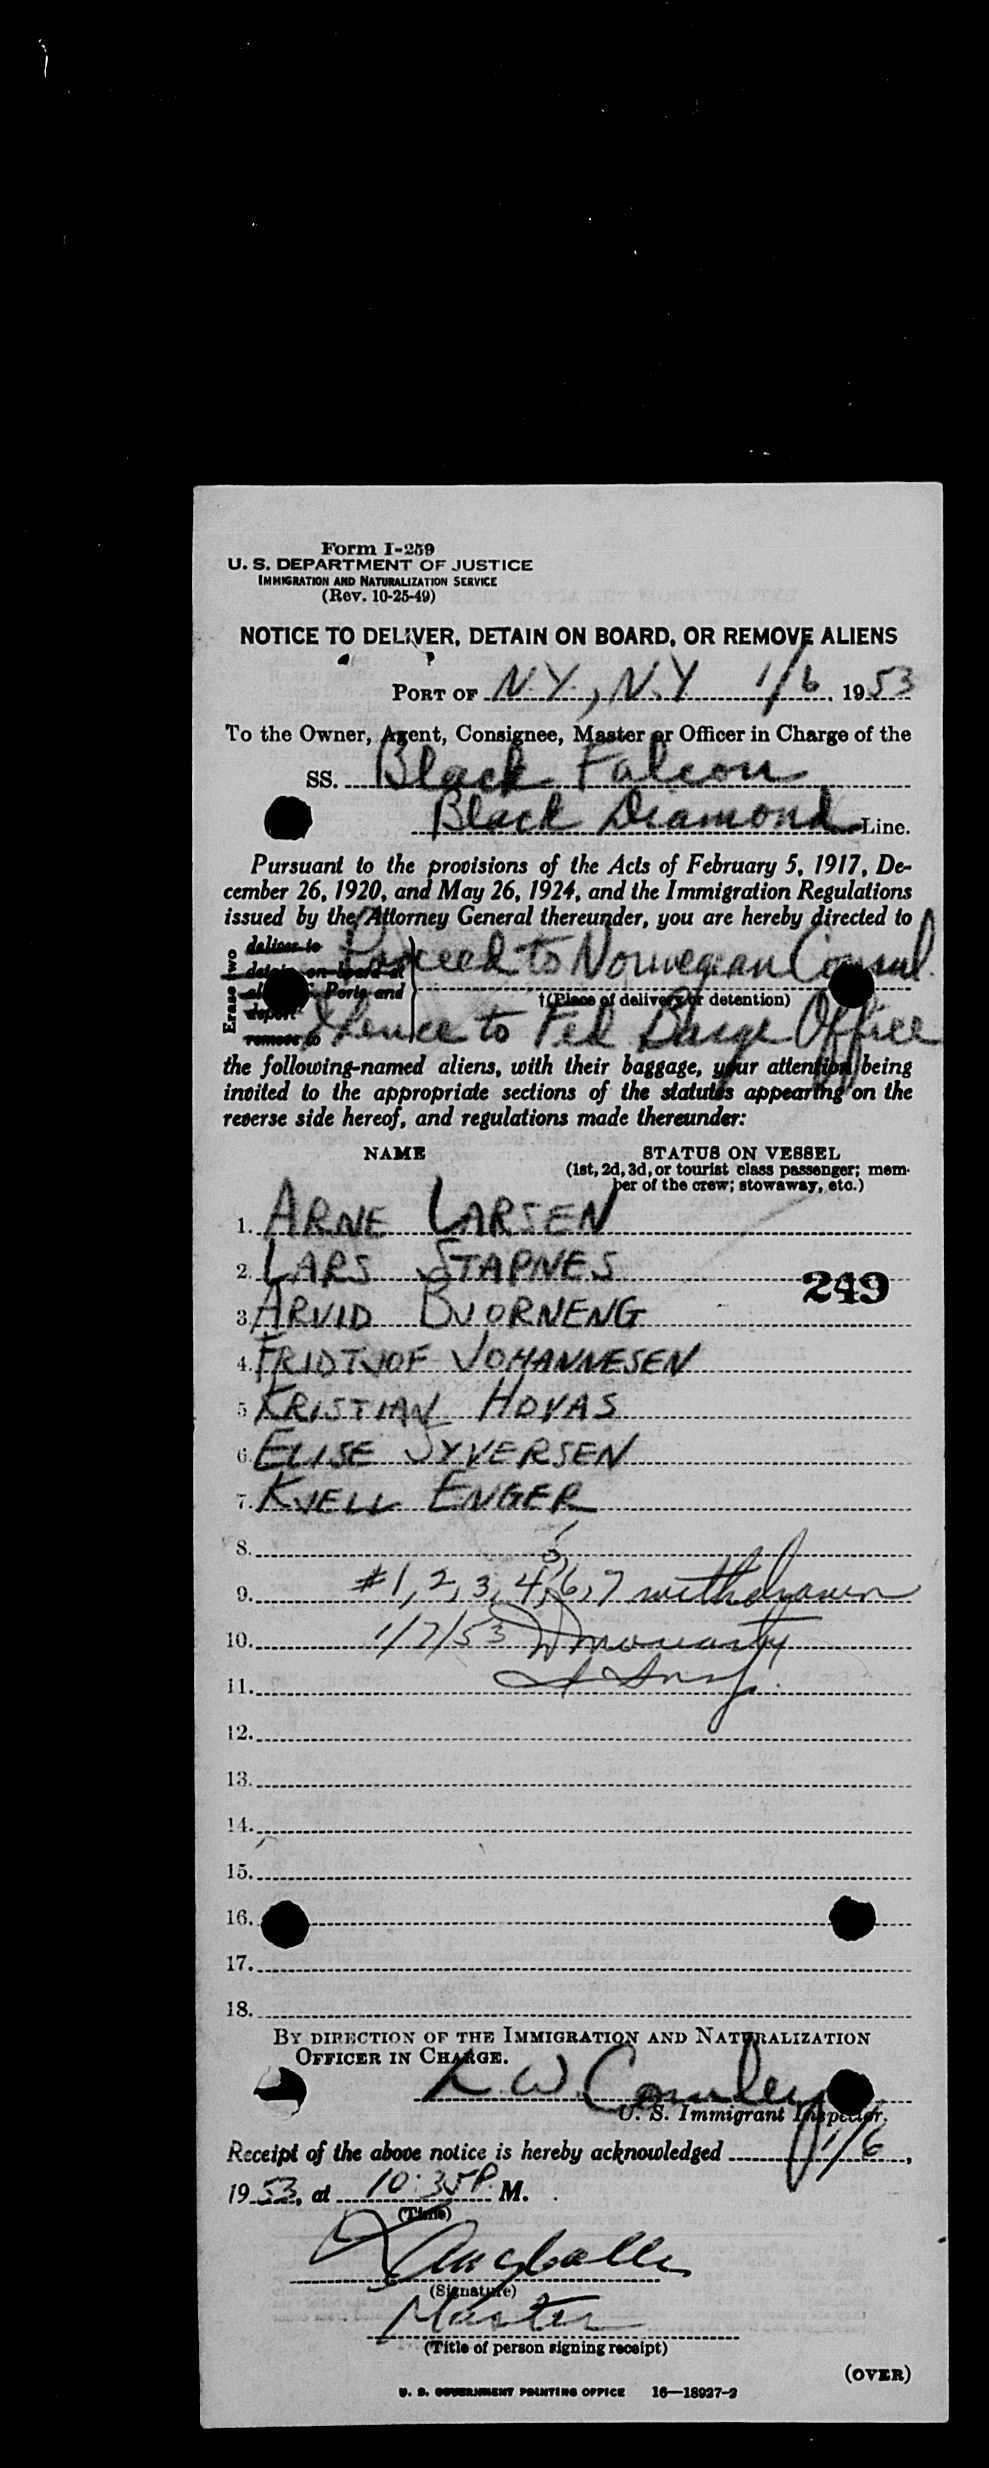 Form I-259
U. S. DEPARTMENT OF JUSTICE
IMMIGRATION AND NATURALIZATION SERVICE
(Rev. 10-25-49)
NOTICE TO DELIVER, DETAIN ON BOARD, OR REMOVE ALIENS
PORT OF N.Y., N.Y 1/6 1953
To the Owner, Agent, Consignee, Master or Officer in Charge of the
SS. Black Falcon
Black Diamond Line.
Pursuant to the provisions of the Acts of February 5, 1917, De-
cember 26, 1920, and May 26, 1924, and the Immigration Regulations
issued by the Attorney General thereunder, you are hereby directed to
Erase two
deliver to
detain on board at
Ports and
deport
remove to
Proceed to Norwegian Consul
†(Place of delivery or detention)
thence to Fed Barge Office
the following-named aliens, with their baggage, your attention being
invited to the appropriate sections of the statutes appearing on the
reverse side hereof, and regulations made thereunder:
NAME STATUS ON VESSEL
(1st, 2d, 3d, or tourist class passenger; mem-
ber of the crew; stowaway, etc.)
1. ARNE LARSEN
2. LARS STAPNES
249
3. ARVID BJORNENG
4. FRIDTJOF JOHANNESEN
5. KRISTIAN HOVAS
6. ELISE SYVERSEN
7. KJELL ENGER
8.
5,
9. #1, 2, 3, 4, 6, 7 withdrawn
10. 1/7/53
11.
12.
13.
14.
15.
16.
17.
18.
BY DIRECTION OF THE IMMIGRATION AND NATURALIZATION
OFFICER IN CHARGE.
U. S. Immigrant Inspector.
Receipt of the above notice is hereby acknowledged 1/6,
1953, at 10:35 P. M.
(Time)
(Signature)
Master
(Title of person signing receipt)
(OVER)
U. S. GOVERNMENT PRINTING OFFICE 16—18927-2